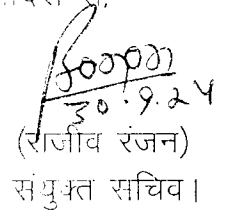 30.9.24
(राजीव रंजन)
संयुक्त सचिव।